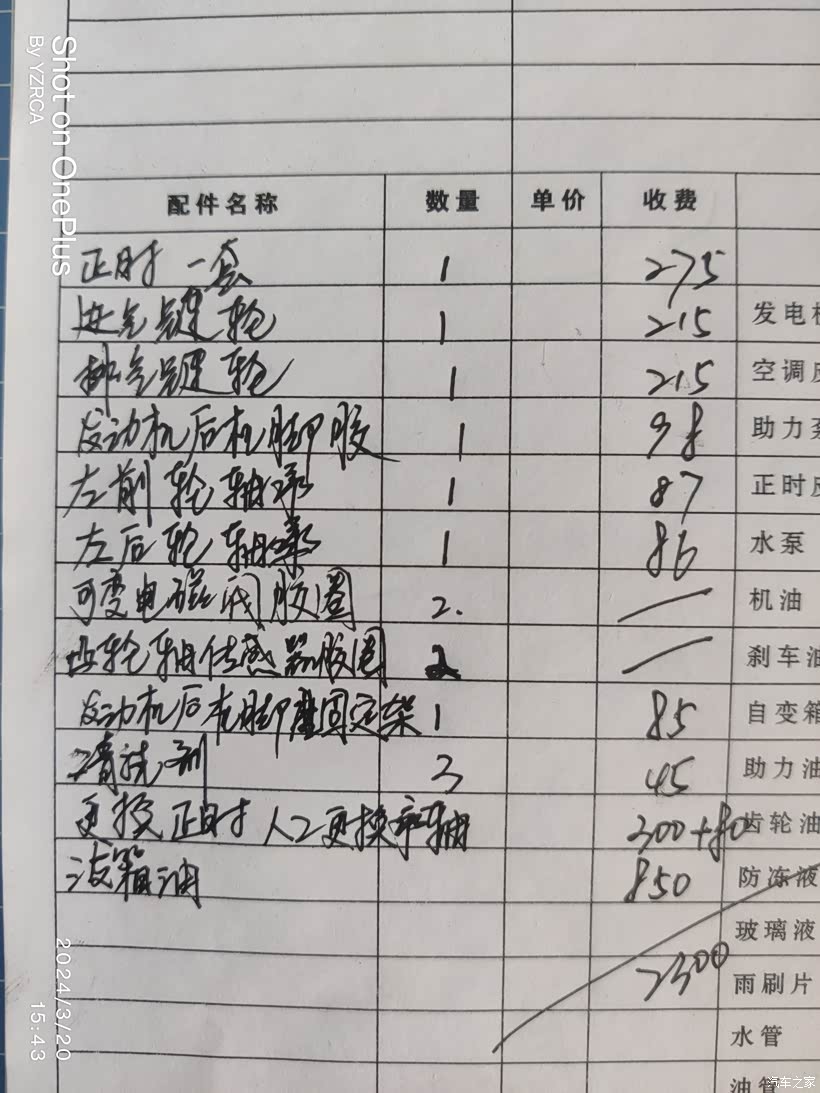 配件名称 数量 单价 收费
正时一套 1 275
进气链轮 1 215 发电机
排气链轮 1 215 空调皮
发动机后机脚胶 1 98 助力泵
左前轮轴承 1 87 正时皮
左后轮轴承 1 86 水泵
可变电磁阀胶圈 2. 机油
凸轮轴传感器胶圈 2 刹车油
发动机后机脚 固定架 1 85 自变箱
清洗剂 3 45 助力油
更换正时人工更换 轴 300+80 齿轮油
波箱油 850 防冻液
玻璃液
2300 雨刷片
水管
油管
Shot on OnePlus
By YZRCA
2024/3/20 15:43
汽车之家